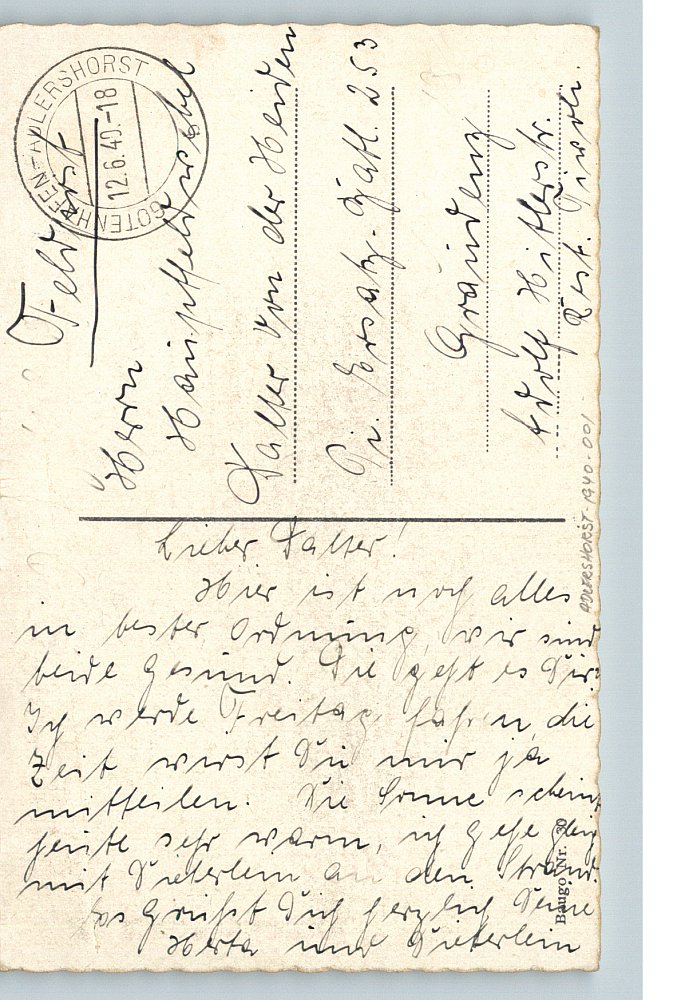 GOTENHAFEN-ADLERSHORST
12.6.40.-18
Feldpost
Herrn
Hauptfeldwebel
Walter von der Heiden
Pi. Ersatz-Batl. 253
Graudenz
Adolf Hitlerstr.
Rest. Tivoli.
ADLERSHORST-1940-001
Lieber Walter!
Hier ist noch alles
in bester Ordnung, wir sind
beide gesund. Wie geht es Dir?
Ich werde Freitag fahren, die
Zeit wirst Du mir ja
mitteilen. Die Sonne scheint
heute sehr warm, ich gehe gleich
mit Dieterlein an den Strand.
Es grüßt Dich herzlich Deine
Herta und Dieterlein
Baugo Nr. 30